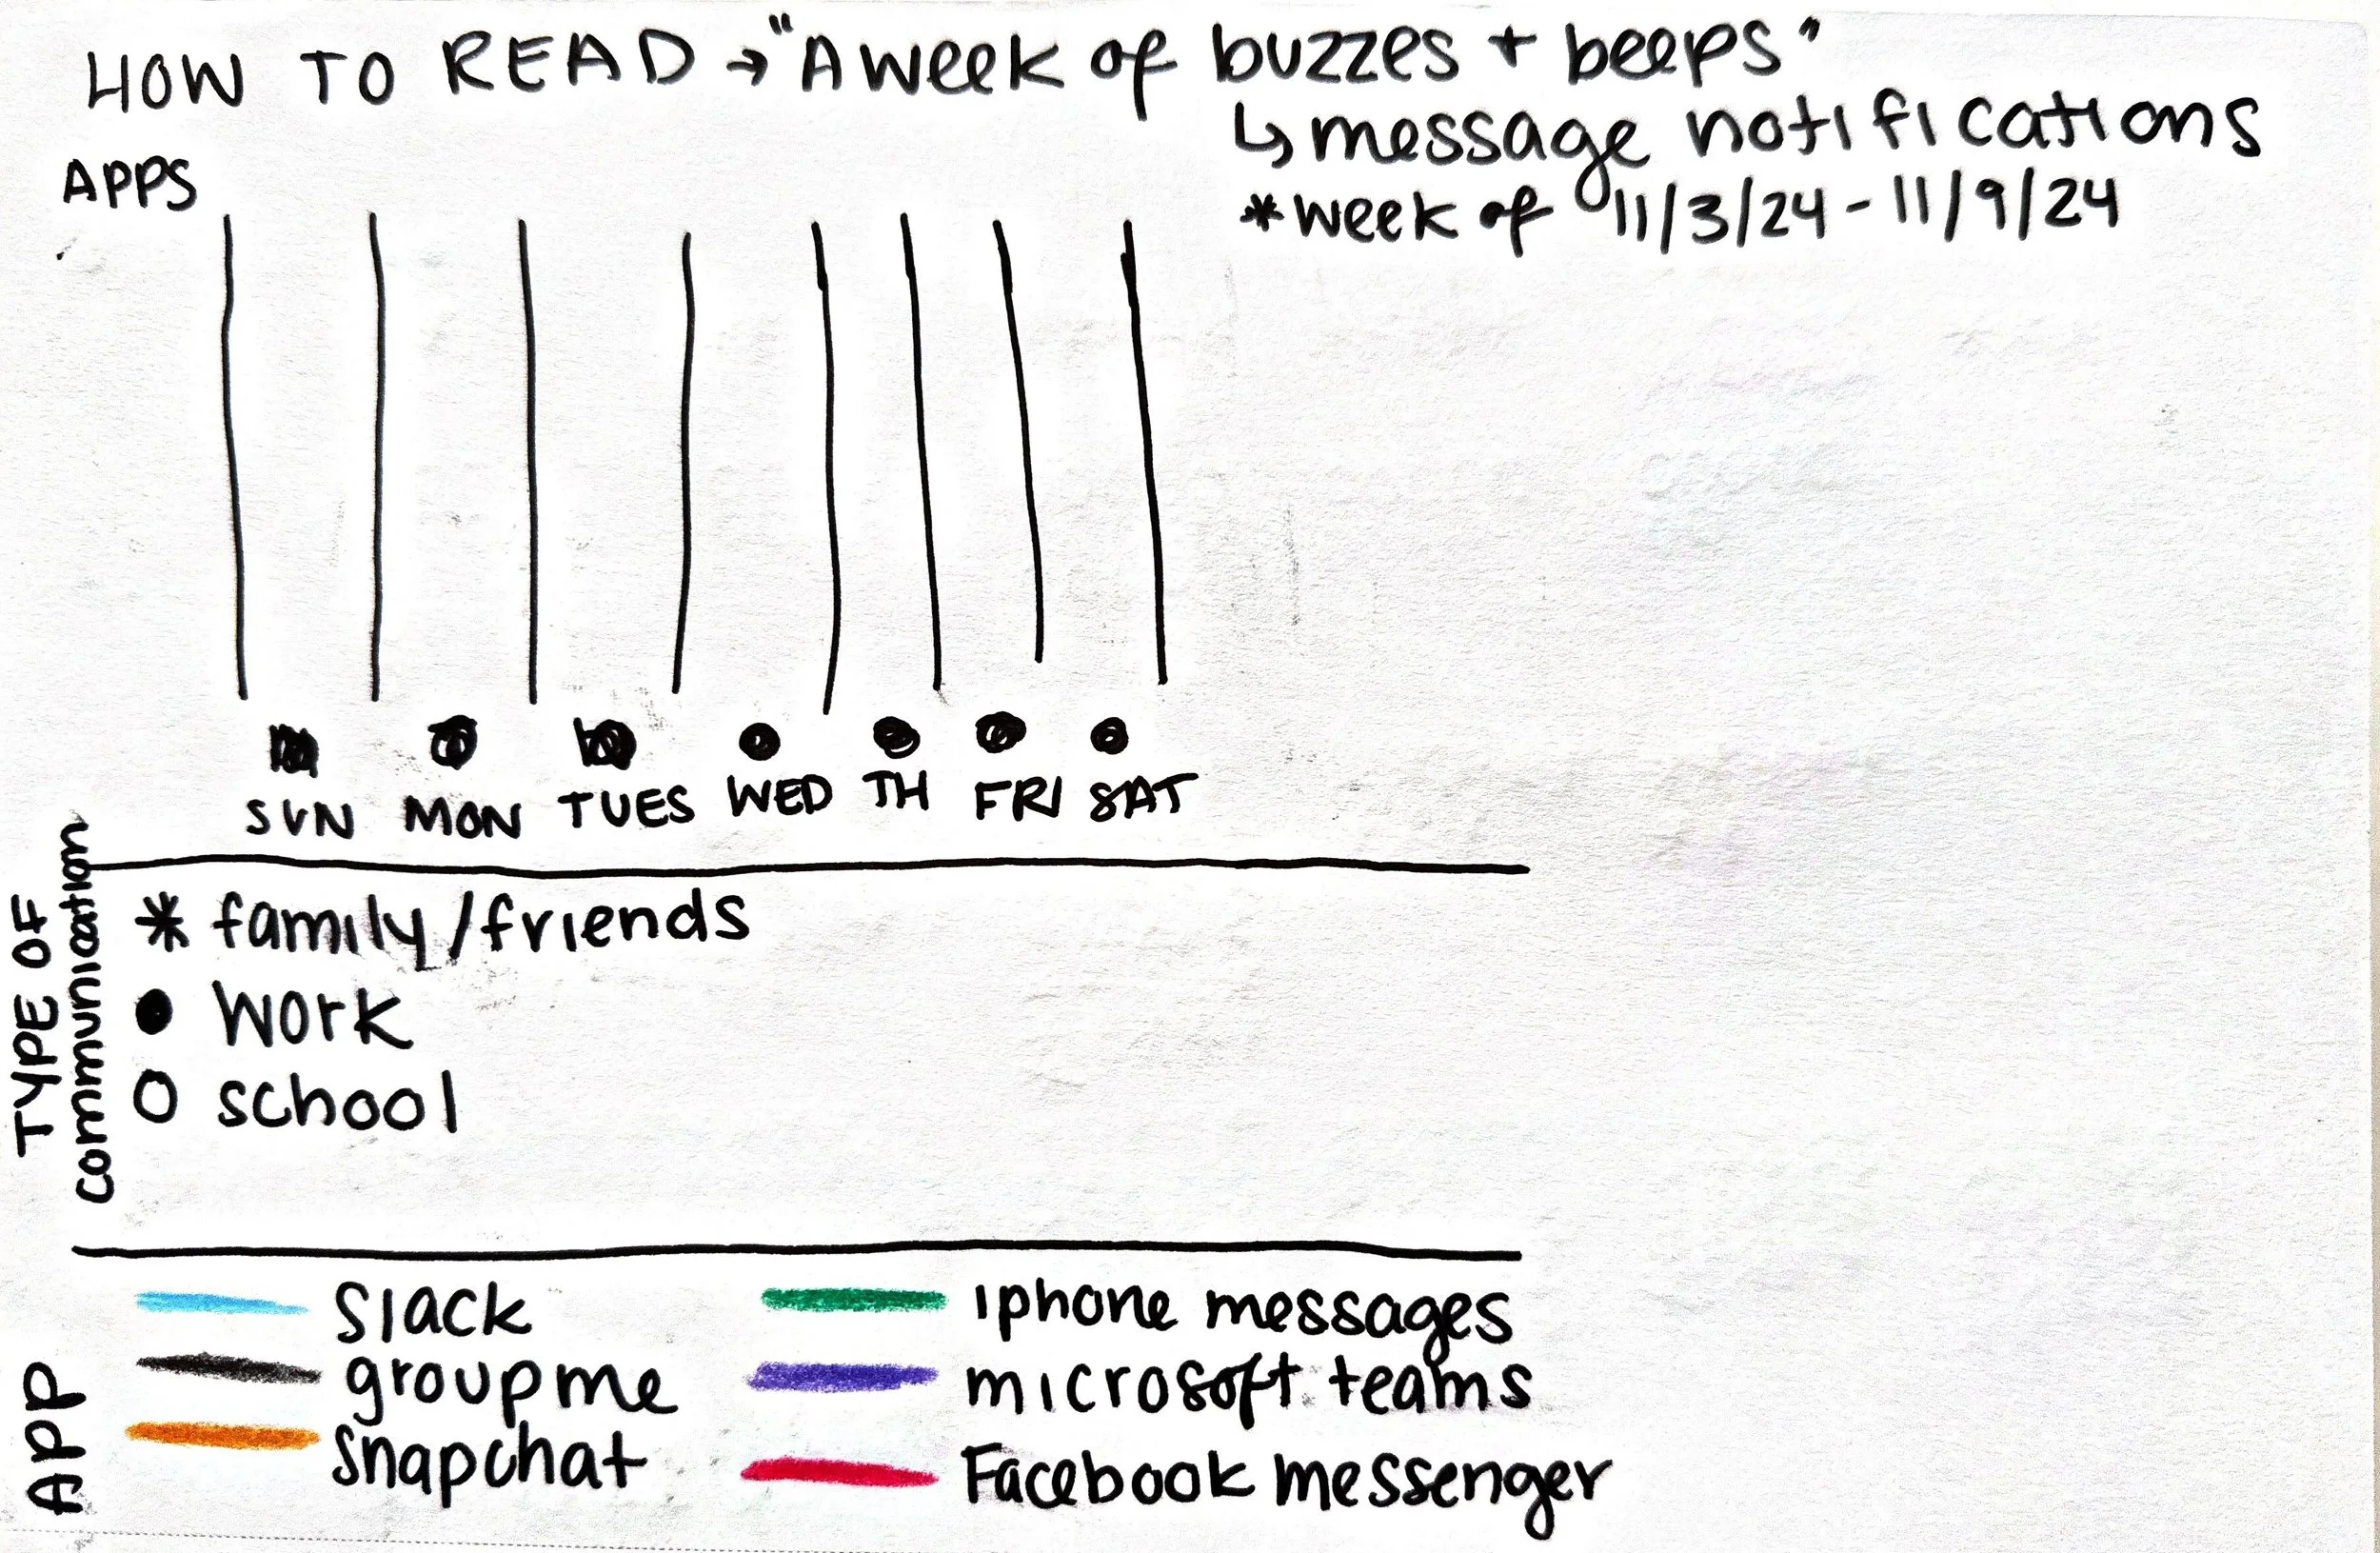 HOW TO READ → "A week of buzzes + beeps"
↳ message notifications
* week of 11/3/24 - 11/9/24
APPS
SUN MON TUES WED TH FRI SAT
TYPE OF
communication
* family/friends
● work
○ school
APP
slack
groupme
snapchat
iphone messages
microsoft teams
Facebook messenger